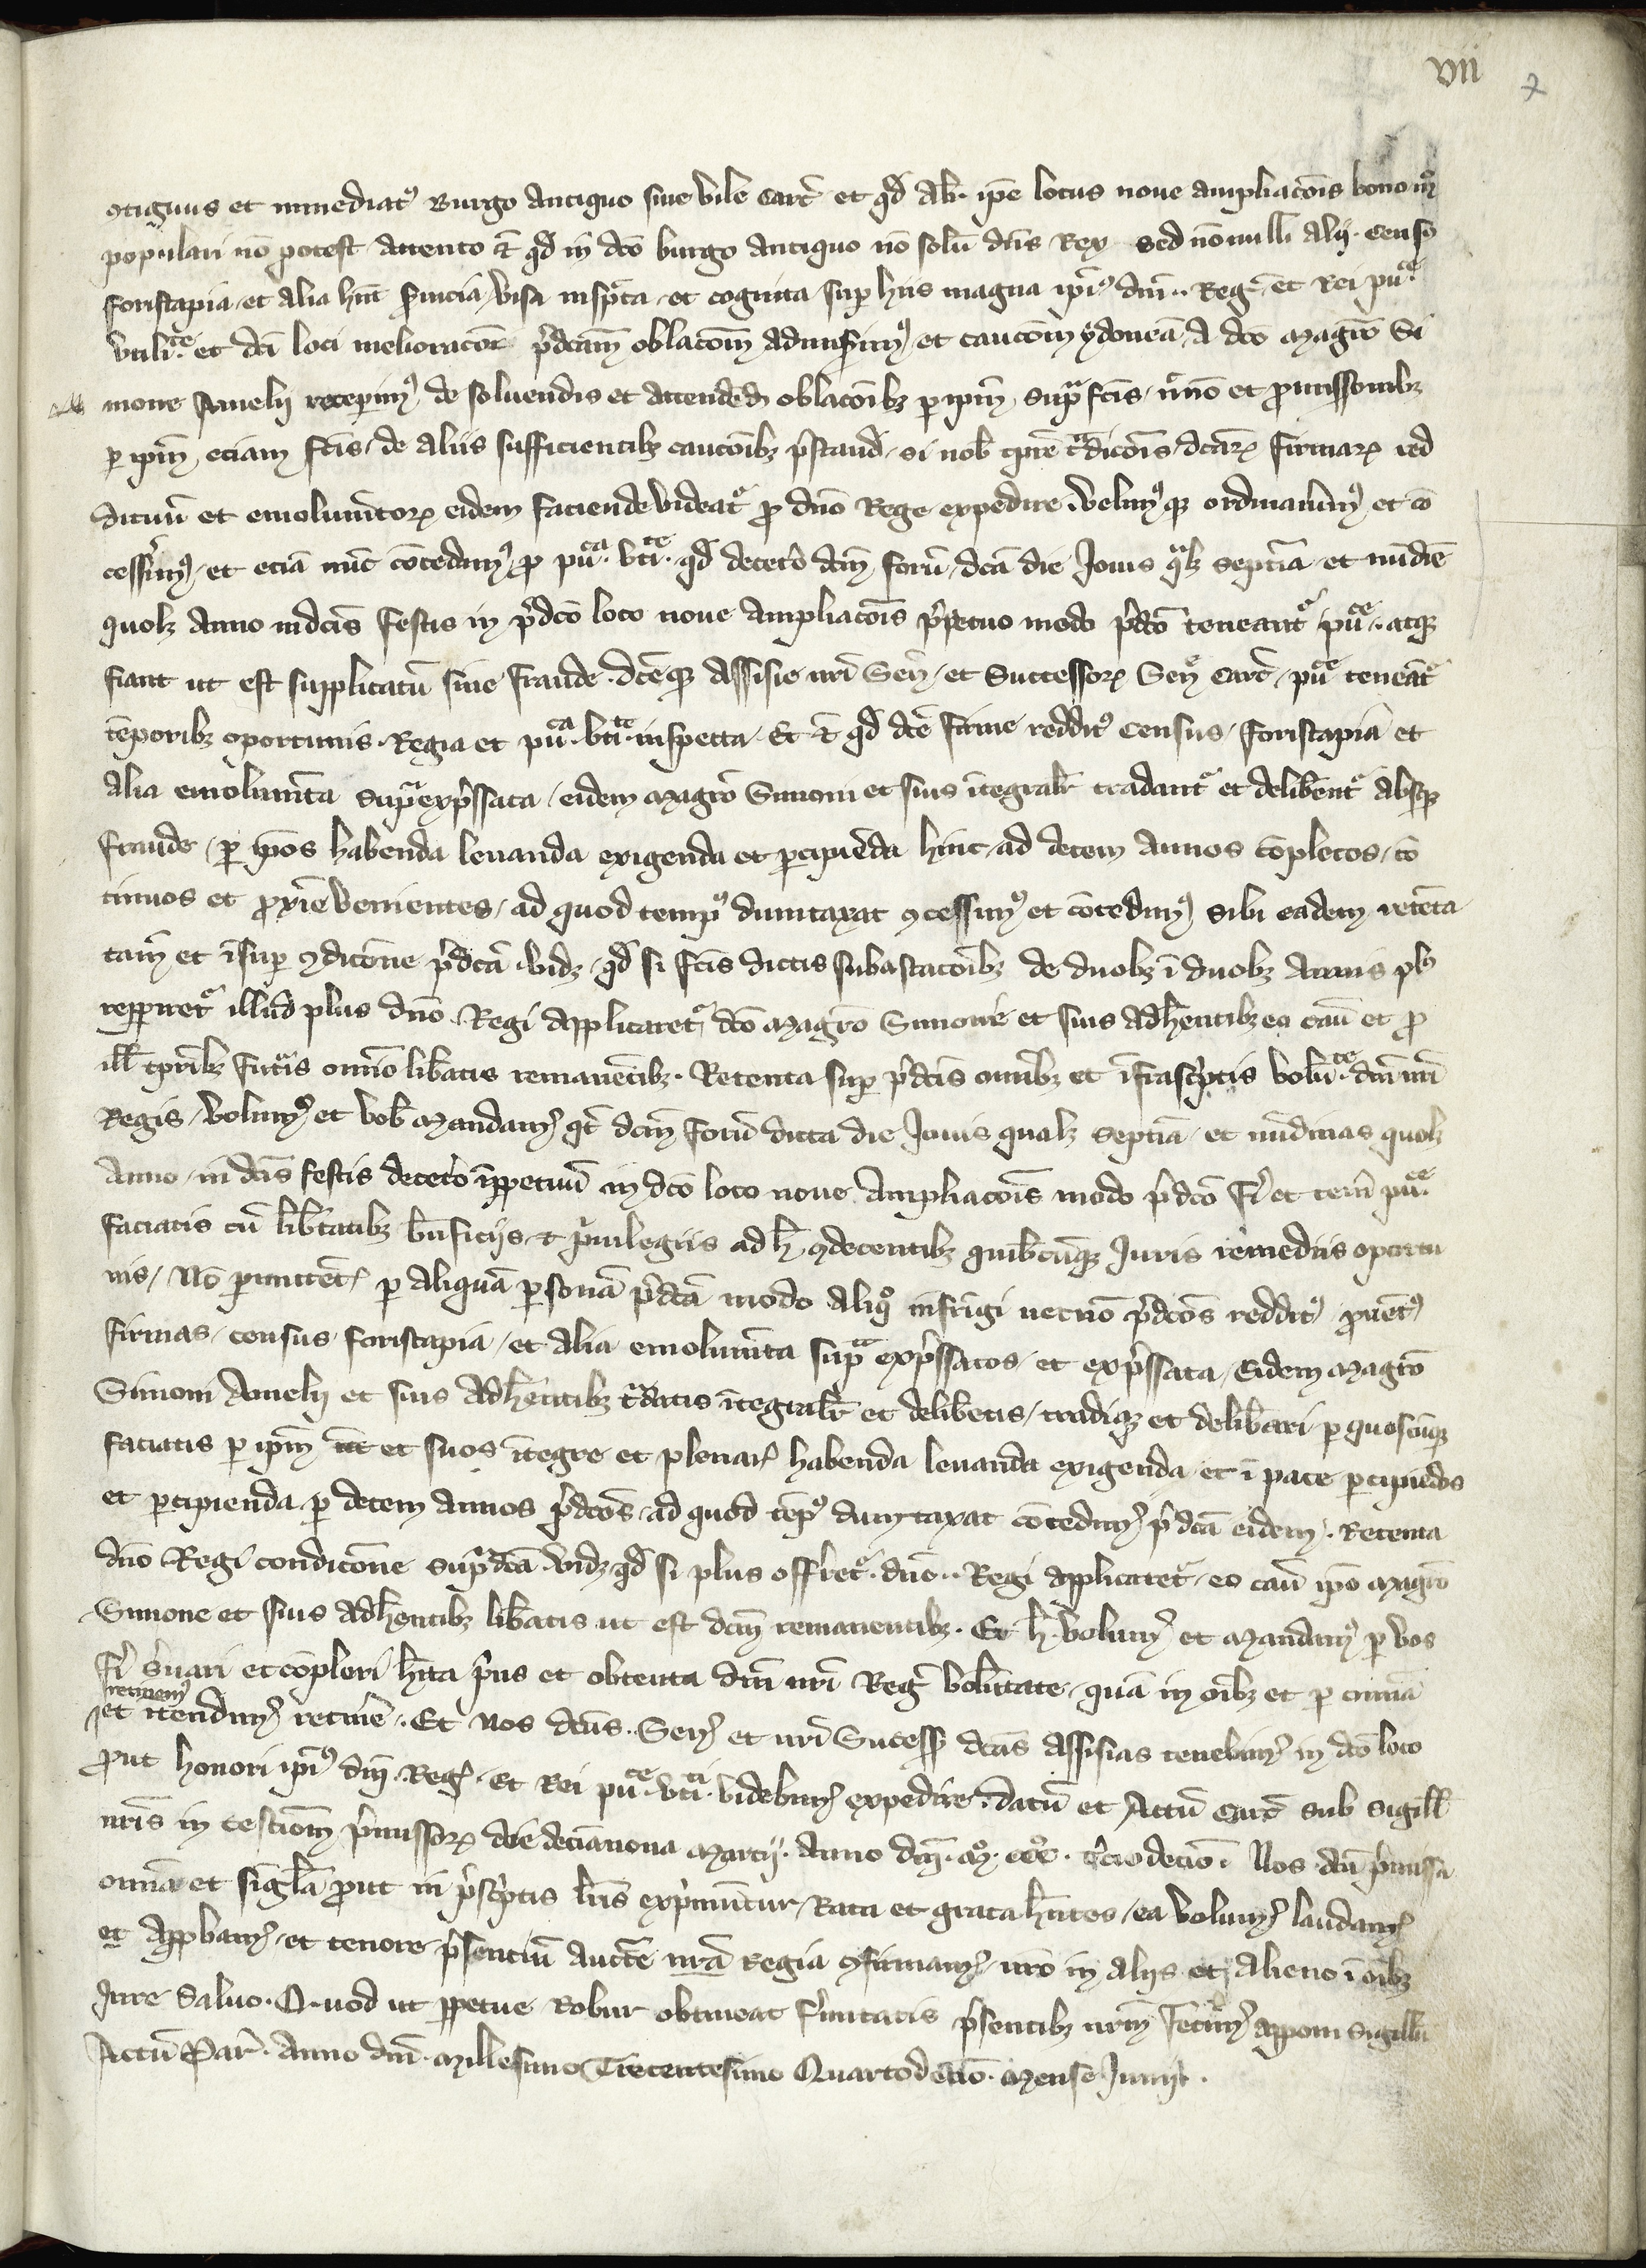 vii 7
ꝯtiguus et inmediatꝰ Burgo antiquo siue vile Carc̄ et qd̄ al̄r ip̄e locus noue ampliac̄onis bono mō
populari nō potest attento ⁊ qd̄ in dc̄o burgo antiquo nō solū dn̄s Rex sed nōnulli alij censꝰ
foriscapia et alia hn̄t visa insp̄cta et cognita sup hiis magna ip̄iꝰ dn̄i Reḡ et Rei puce
vtilitate et dc̄i loci melioracōe p̄dcam oblacōm admisimꝰ et caucōm ydoneā a dc̄o magr̄o Si
mone Amelij recepimꝰ de soluendis et attendēd oblacōibꝫ p ip̄m supᵃ fc̄is nn̄o et promissionibꝫ
p ip̄m eciam fc̄is de aliis sufficientibꝫ caucōibꝫ p̄stand si nob tp̄re t̄dicōis dc̄arꝝ firmarꝝ red
dituū et emolumētorꝝ eidem faciende videatr̄ pro dn̄o Rege expedire volumꝰqꝫ ordinauimꝰ et cō
cessimꝰ et eciā nūc cōcedimꝰ pro puca vtite qd̄ deceto dc̄m forū dc̄a die Jouis qᵃlꝫ septīa et nūdīe
quolꝫ anno in dc̄is festis in p̄dc̄o loco noue ampliacōis p̄petuo modo p̄dc̄o teneantr̄ puce atqꝫ
fiant ut est supplicatū sine fraude dc̄eqꝫ assisie nr̄i Sen̄ et Successorꝝ Sen̄ Carc̄ puce teneātr̄
tēporibꝫ oportunis Regia et puca vtite inspecta Et ⁊ qd̄ dc̄e firme redditꝰ census foriscapia et
alia emolumēta supᵃ exp̄ssata eidem magr̄o Simoni et suis ītegralr̄ tradantr̄ et delibentr̄ absqꝫ
fraude p ip̄os habenda leuanda exigenda et percipiēda hinc ad decem annos cōpletos cō
tinuos et proxīe venientes ad quod tempꝰ dumtaxat ꝯcessimꝰ et cōcedimꝰ sibi eadem retēta
tam et īsup ꝯdicōne p̄dc̄a vidꝫ qd̄ si fc̄is dictis subastacōibꝫ de duobꝫ ī duobꝫ annis plꝰ
repperiretr̄ illud plus dn̄o Regi applicaretr̄ dc̄o magr̄o Simone et suis adherentibꝫ eo casū et pro
ill tp̄ribꝫ futis omīo libatis remanētibꝫ Retenta sup p̄dc̄is om̄ibꝫ et īfrasc̄ptis volūte dn̄i nr̄i
Regis volumꝰ et vob mandamꝰ qt̄ dc̄m forū dicta die Jouis qualꝫ septīa et nūdinas quolꝫ
anno in dc̄is festis deceto īppetuū in dc̄o loco noue ampliacōis modo p̄dc̄o fi et teneri puce
faciatis cū libtatibꝫ bn̄ficijs ⁊ p̄uilegiis ad h ꝯdecentibꝫ quibcūqꝫ Juris remediis oportu
nis Nō permittētes p aliquā personā p̄dc̄a modo aliqᵒ infrigi necnō p̄dc̄os redditꝰ prouētꝰ
firmas census foriscapia et alia emolumēta supᵃ exp̄ssatos et exp̄ssata Eidem magr̄o
Simoni Amelij et suis adherētibꝫ t̄datis ītegralr̄ et delibetis tradiqꝫ et delibari p quoscūqꝫ
faciatis p ip̄m et suos ītegre et plenarie habenda leuanda exigenda et ī pace percipiēdos
et percipienda p decem annos p̄dc̄os ad quod tēpꝰ dumtaxat cōcedimꝰ p̄dc̄a eidem Retenta
dn̄o Regi condicōne sup̄dc̄a vidꝫ qd̄ si plus offeretr̄ dn̄o Regi applicaretr̄ eo casū ip̄o magr̄o
Simone et suis adherentibꝫ libatis ut est dc̄m remanentibꝫ Et h volumꝰ et mandamꝰ p vos
fi suari et cōpleri hīta prius et obtenta dn̄i nr̄i Reḡ volūtate quā in oībꝫ et p omnia
retinemꝰ
et ītendimꝰ retinere Et Nos dc̄us Senꝰ et nr̄i Sucess dc̄as assisias tenebimꝰ in dc̄o loco
prout honori ip̄iꝰ dn̄i Reḡ Et Rei puce vtiti videbimꝰ expedire datū et Actū Carc̄ sub sigill
nr̄is in testiōm p̄missorꝝ die deciānona marcij Anno dn̄i mᵒ cccᵒ tc̄iodecīo Nos aūt p̄missa
omīa et singla prout in p̄sc̄ptis lr̄is exp̄imūtur Rata et grata hn̄tes ea volumꝰ laudamꝰ
et appbamꝰ et tenore p̄sentiū auctte nr̄a Regia ꝯfirmamꝰ nr̄o in alijs et alieno ī oībꝫ
Jure Saluo Quod ut ppetue Robur obtineat firmitatis p̄sentibꝫ nr̄m fecimꝰ apponi sigillū
Actū Par̄ Anno dn̄i millesimo Trecentesimo Quartodecīo mense Junij